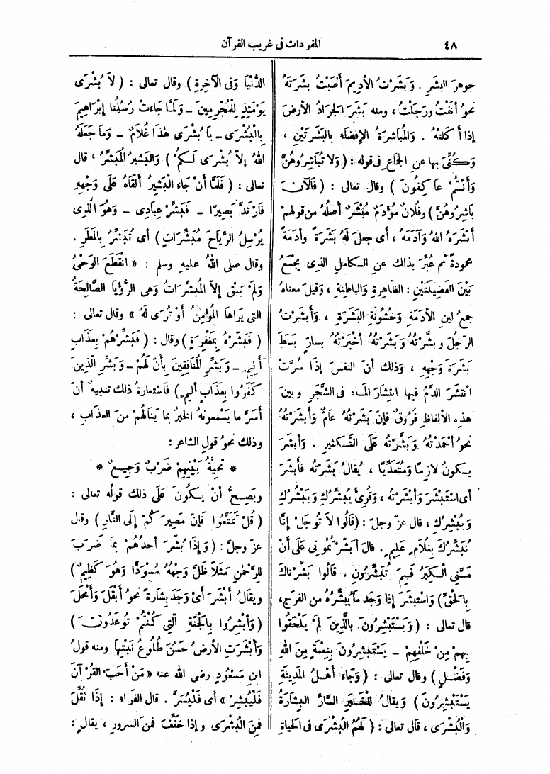 ٤٨
المفردات فى غريب القرآن
جوهر البشر . وَبَشَرْتُ الأديمَ أَصَبْتُ بَشَرَتَهُ
نحوُ أَنَفْتُ وَرَجَلْتُ ، ومنه بَشَرَ الجَرَادُ الأرضَ
إذا أَكَلَتْهُ . والمباشَرةُ الإفضاء بالبَشَرَتَيْنِ ،
وَكُنِّىَ بها عن الجِمَاعِ فى قوله : ( وَلَا تُبَاشِرُوهُنَّ
وَأَنْتُمْ عَاكِفُونَ ) وقال تعالى : ( فَالْآنَ
بَاشِرُوهُنَّ ) وفُلَانٌ مُؤْدَمٌ مُبْشَرٌ أصلُهُ من قولهم
أَبْشَرَهُ اللهُ وَآدَمَهُ ، أى جعلَ لهُ بَشَرَةً وأَدَمَةً
محمودةً ثم عُبِّرَ بذلك عن الكامل الذى يجمَعُ
بَيْنَ الفَضِيلتينِ : الظاهِرةِ والباطِنةِ ، وقيلَ معناهُ
جمعُ لينِ الأدَمَةِ وخُشُونةِ البَشَرَةِ ، وأَبْشَرْتُ
الرَّجُلَ وبَشَّرْتُهُ وبَشَرْتُهُ أخْبَرْتُهُ بسارٍّ بَسَطَ
بَشَرَةَ وَجْهِهِ ، وذلك أنّ النفسَ إذا سُرَّتْ
انتشَرَ الدَّمُ فيها انتشارَ الماءِ فى الشَّجَرِ وبينَ
هذِهِ الألفاظِ فُروقٌ فإنّ بَشَرْتُهُ عامٌّ وأَبْشَرْتُهُ
نحوُ أَحْمَدْتُهُ وبَشَّرْتُهُ عَلَى التَّكْثِيرِ . وأَبْشَرَ
يكونُ لازِماً ومُتَعَدِّياً ، يُقالُ بَشَرْتُهُ فأَبْشَرَ
أى اسْتَبْشَرَ وأَبْشَرْتُهُ ، وقُرِئَ يُبَشِّرُكَ وَيَبْشُرُكَ
وَيُبْشِرُكَ ، قال عزّ وجلّ : ( قَالُوا لَا تَوْجَلْ إِنَّا
نُبَشِّرُكَ بِغُلَامٍ عَلِيمٍ . قالَ أَبَشَّرْتُمُونِى عَلَى أَنْ
مَسَّنِىَ الْكِبَرُ فَبِمَ تُبَشِّرُونَ . قالُوا بَشَّرْنَاكَ
بِالحَقِّ ) وَاسْتَبْشَرَ إذا وَجَدَ ما يُبَشِّرُهُ من الفَرَجِ ،
قال تعالى : ( وَيَسْتَبْشِرُونَ بِالَّذِينَ لَمْ يَلْحَقُوا
بِهِمْ مِنْ خَلْفِهِمْ - يَسْتَبْشِرُونَ بِنِعْمَةٍ مِنَ اللهِ
وَفَضْلٍ ) وقال تعالى : ( وَجَاءَ أَهْلُ الْمَدِينَةِ
يَسْتَبْشِرُونَ ) ويقالُ للخَبَرِ السَّارِّ البِشَارَةُ
وَالبُشْرَى ، قال تعالى : ( لَهُمُ الْبُشْرَى فى الحَيَاةِ
الدُّنْيَا وَفِى الآخِرَةِ ) وقال تعالى : ( لَا بُشْرَى
يَوْمَئِذٍ لِلْمُجْرِمِينَ - وَلَمَّا جَاءَتْ رُسُلُنَا إِبْرَاهِيمَ
بِالْبُشْرَى - يَا بُشْرَى هٰذَا غُلَامٌ - وَمَا جَعَلَهُ
اللهُ إِلاَّ بُشْرَى لَكُمْ ) وَالبَشِيرُ المُبَشِّرُ ، قال
تعالى : ( فَلَمَّا أَنْ جَاءَ الْبَشِيرُ أَلْقَاهُ عَلَى وَجْهِهِ
فَارْتَدَّ بَصِيراً - فَبَشِّرْ عِبَادِى - وَهُوَ الَّذِى
يُرْسِلُ الرِّيَاحَ مُبَشِّرَاتٍ ) أى تُبَشِّرُ بالمَطَرِ .
وقال صلى اللهُ عليه وسلم : « انْقَطَعَ الْوَحْىُ
وَلَمْ يَبْقَ إِلاَّ المُبَشِّرَاتُ وَهِىَ الرُّؤْيَا الصَّالِحَةُ
الَّتِى يَرَاهَا المُؤْمِنُ أَوْ تُرَى لَهُ » وقال تعالى :
( فَبَشِّرْهُ بِمَغْفِرَةٍ ) وقال : ( فَبَشِّرْهُمْ بِعَذَابٍ
أَلِيمٍ - وَبَشِّرِ المُنَافِقِينَ بِأَنَّ لَهُمْ - وَبَشِّرِ الَّذِينَ
كَفَرُوا بِعَذَابٍ أَلِيمٍ ) فاستعارةُ ذلك تنبيهٌ أنّ
أَسَرَّ ما يَسْمعونَهُ الخبرُ بما يَنالُهُمْ من العذابِ ،
وذلك نحوُ قولِ الشاعِرِ :
* تَحِيَّةُ بَيْنِهِمْ ضَرْبٌ وَجِيعُ *
ويصِحُّ أنْ يكُونَ عَلَى ذلك قولُه تعالى :
( قُلْ تَمَتَّعُوا فَإِنَّ مَصِيرَكُمْ إِلَى النَّارِ ) وقال
عزّ وجلّ : ( وَإِذَا بُشِّرَ أَحَدُهُمْ بِمَا ضَرَبَ
لِلرَّحْمٰنِ مَثَلاً ظَلَّ وَجْهُهُ مُسْوَدًّا وَهُوَ كَظِيمٌ )
ويقالُ أَبْشَرَ أى وَجَدَ بِشَارَةً نحوُ أَبْقَلَ وَأَمْحَلَ
( وَأَبْشِرُوا بِالجَنَّةِ الَّتِى كُنْتُمْ تُوعَدُونَ )
وَأَبْشَرَتِ الأرضُ حَسُنَ طُلُوعُ نَبْتِها ومنه قولُ
ابنِ مَسْعُودٍ رضى الله عنه « مَنْ أَحَبَّ القُرْآنَ
فَلْيُبْشِرْ » أى فَلْيُسَرَّ . قال الفرّاءُ : إذَا ثُقِّلَ
فمِنَ البُشْرَى وإذا خُفِّفَ فمنَ السرورِ ، يقالُ :